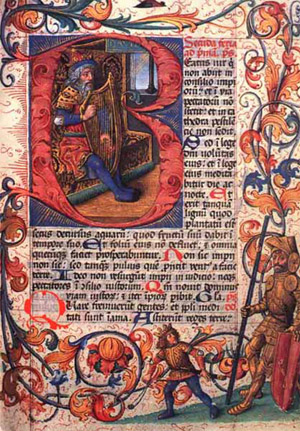 Secūda feria
ad pmā. ps
Eatus vir q̄
non abiit in
consilio imp
iorū: et ī via
peccatorū nō
stetit: et in ca
thedra pestilē
cie non sedit.
Sed ī lege
dn̄i volūtas
eius: et ī lege
eius medita
bitur die ac
nocte. Et
erit tanquā
lignū quod
plantatū est
secus decursus aquarū: quod fructū suū dabit ī
tempore suo. Et foliū eius nō defluet: et omnia
quecūqz faciet prosperabuntur. Non sic impii
non sic: sed tanqz puluis quē proicit vent a facie
terre. Ideo non resurgūt impii in iudicio: neqz
peccatores ī cōsilio iustorum. Qm̄ nouit dominus
viam iustorū: et iter ipiorū pibit. Gla. ps
Quare fremuerunt gentes: et ppli medi
tati sunt inania. Astiterūt reges terre: